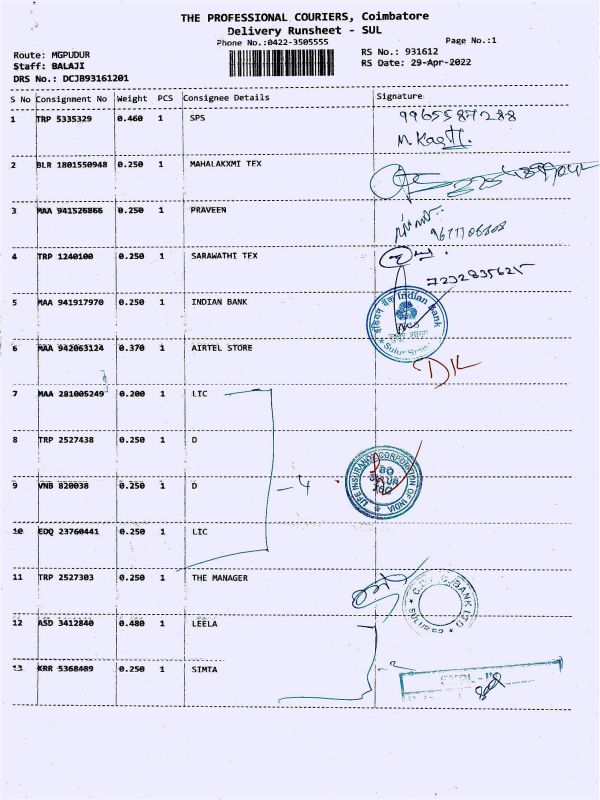 THE PROFESSIONAL COURIERS, Coimbatore
Delivery Runsheet - SUL
Phone No.:0422-3505555
Page No.:1
Route: MGPUDUR
RS No.: 931612
Staff: BALAJI
RS Date: 29-Apr-2022
DRS No.: DCJB93161201
S No Consignment No Weight PCS Consignee Details Signature
1 TRP 5335329 0.460 1 SPS 9965587288
2 BLR 1801550948 0.250 1 MAHALAKXMI TEX
3 MAA 941526866 0.250 1 PRAVEEN
4 TRP 1240100 0.250 1 SARAWATHI TEX
7232835625
5 MAA 941917970 0.250 1 INDIAN BANK
इंडियन बैंक Indian Bank
6 MAA 942063124 0.370 1 AIRTEL STORE
7 MAA 281005249 0.200 1 LIC
8 TRP 2527438 0.250 1 D
LIFE INSURANCE CORPORATION OF INDIA
9 VNB 820038 0.250 1 D
- 4
10 EDQ 23760441 0.250 1 LIC
11 TRP 2527303 0.250 1 THE MANAGER
BANK LTD
12 ASD 3412840 0.480 1 LEELA
13 KRR 5368489 0.250 1 SIMTA